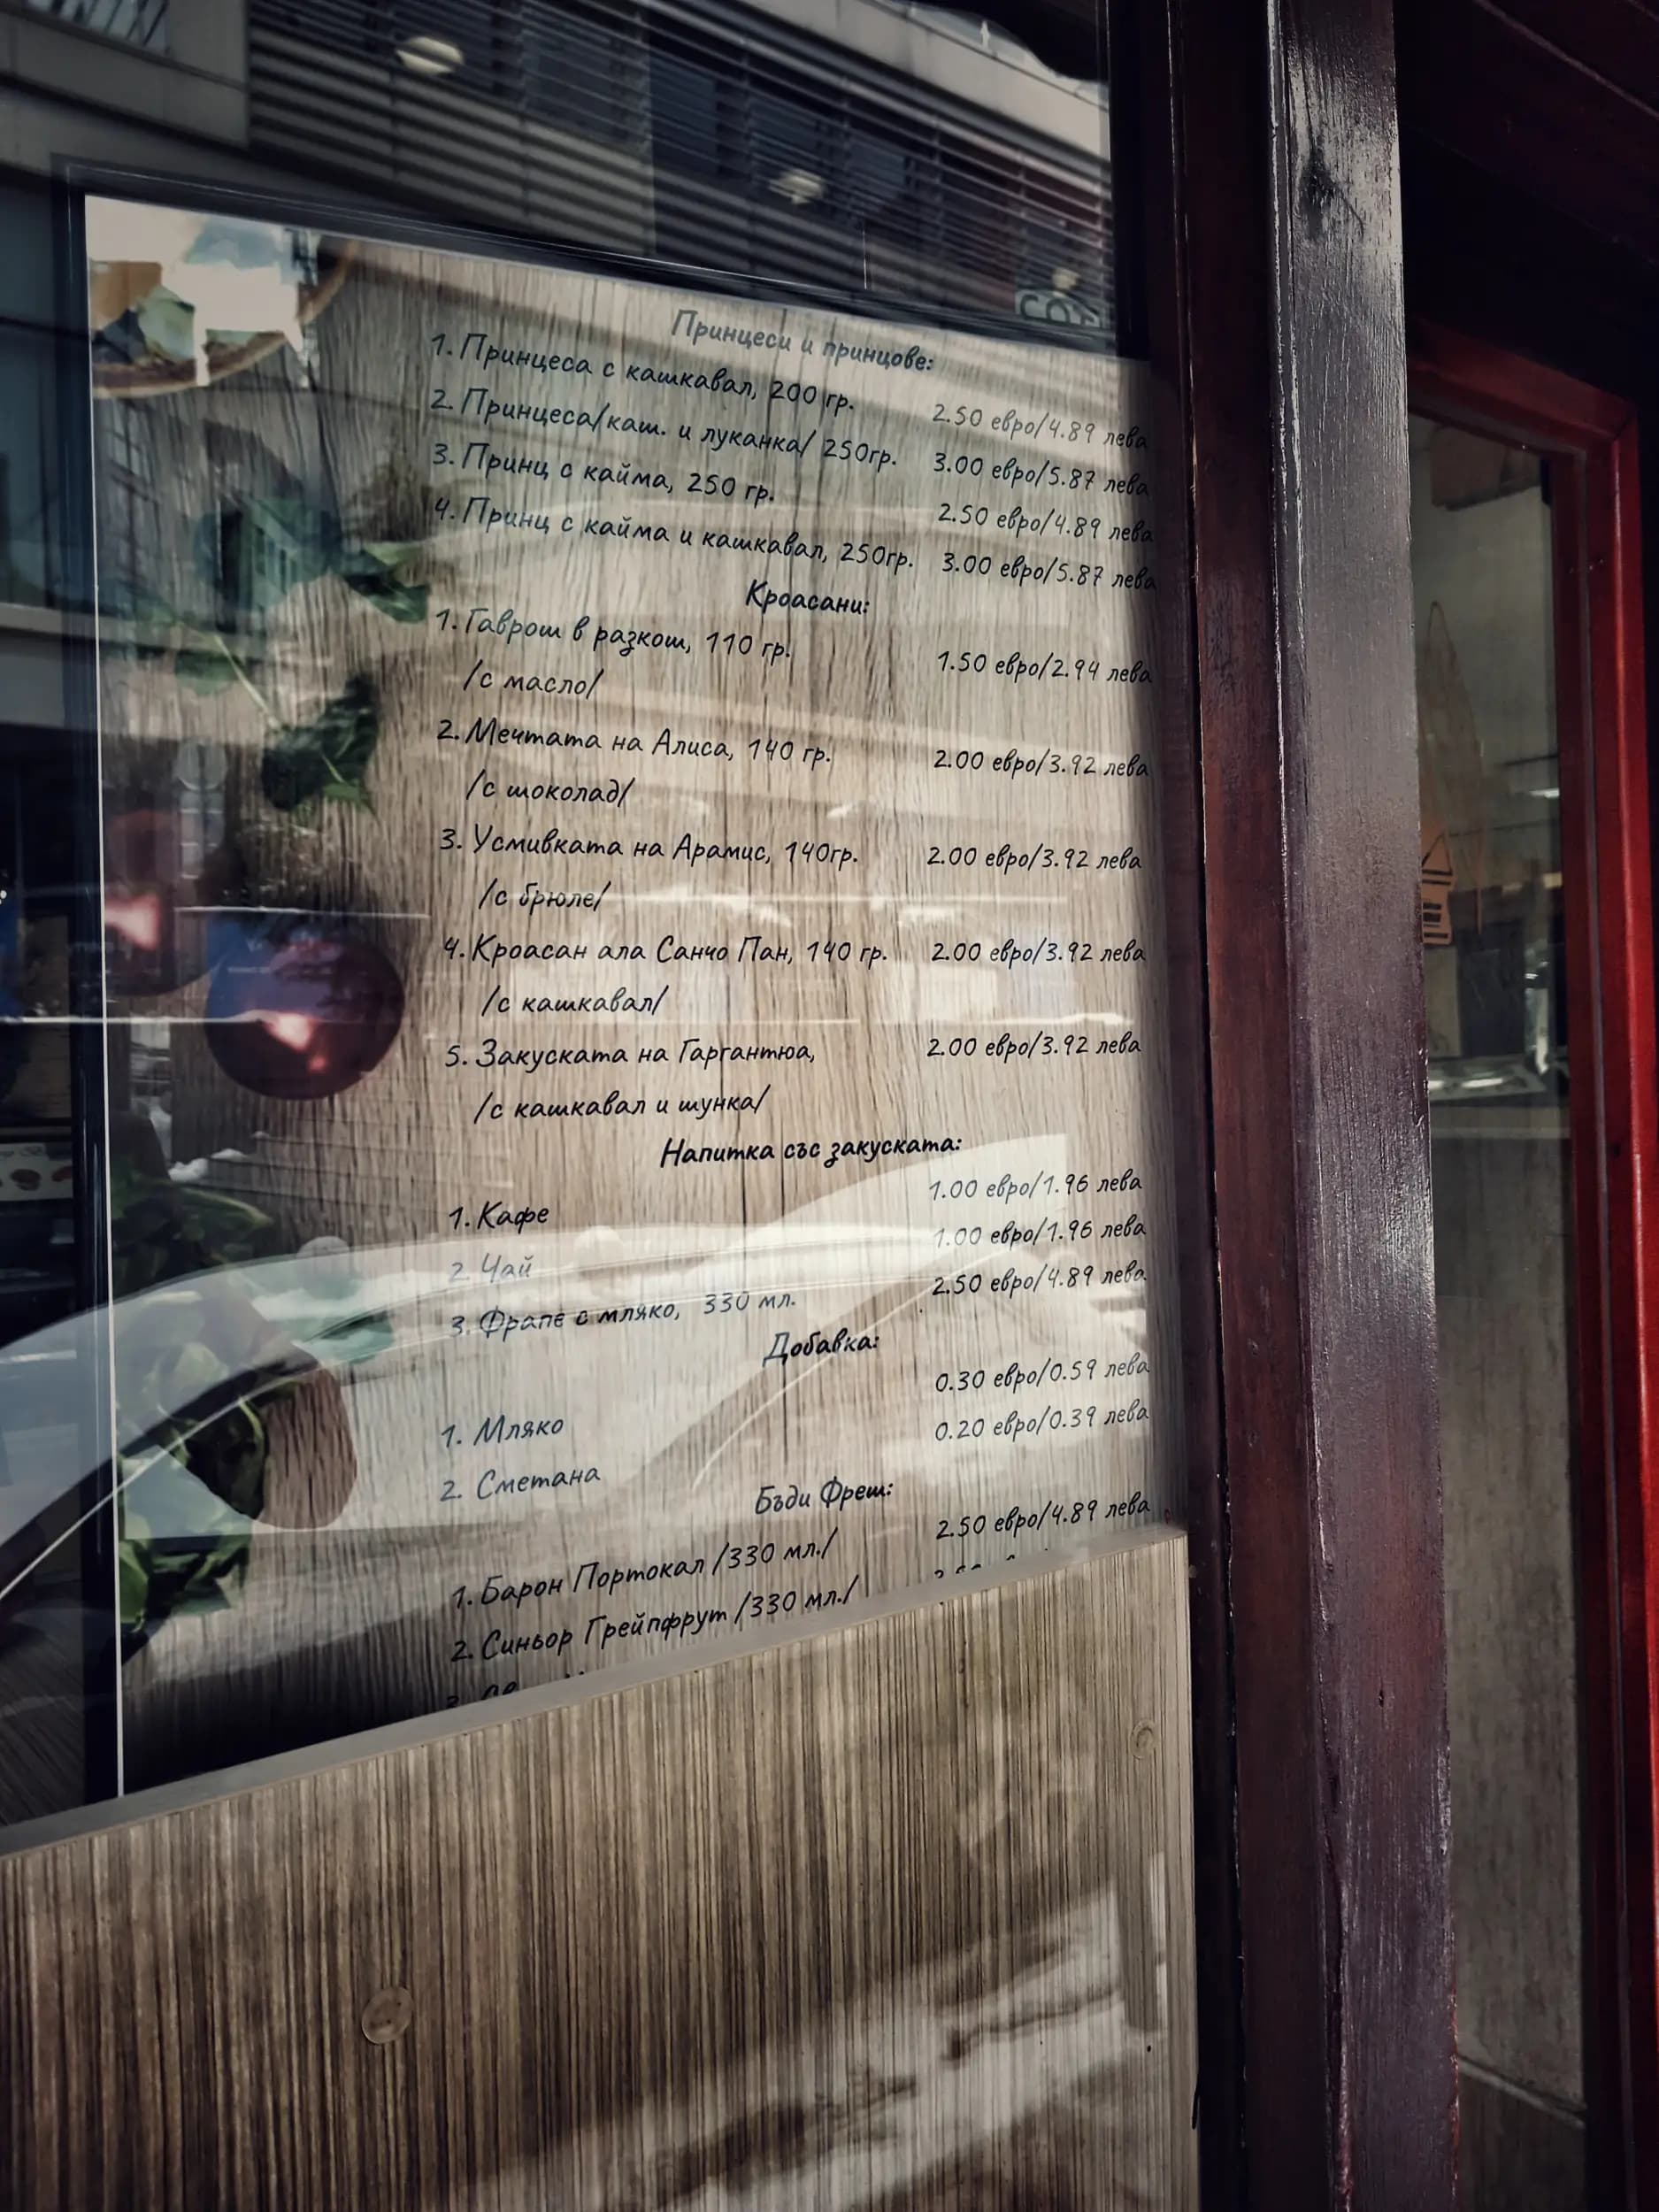 Принцеси и принцове:
1. Принцеса с кашкавал, 200 гр. 2.50 евро/4.89 лева
2. Принцеса/каш. и луканка/ 250гр. 3.00 евро/5.87 лева
3. Принц с кайма, 250 гр. 2.50 евро/4.89 лева
4. Принц с кайма и кашкавал, 250гр. 3.00 евро/5.87 лева
Кроасани:
1. Гаврош в разкош, 110 гр. 1.50 евро/2.94 лева
/с масло/
2. Мечтата на Алиса, 140 гр. 2.00 евро/3.92 лева
/с шоколад/
3. Усмивката на Арамис, 140гр. 2.00 евро/3.92 лева
/с брюле/
4. Кроасан ала Санчо Пан, 140 гр. 2.00 евро/3.92 лева
/с кашкавал/
5. Закуската на Гаргантюа, 2.00 евро/3.92 лева
/с кашкавал и шунка/
Напитка със закуската:
1. Кафе 1.00 евро/1.96 лева
2. Чай 1.00 евро/1.96 лева
3. Фрапе с мляко, 330 мл. 2.50 евро/4.89 лева
Добавка:
1. Мляко 0.30 евро/0.59 лева
2. Сметана 0.20 евро/0.39 лева
Бъди Фреш:
1. Барон Портокал /330 мл./ 2.50 евро/4.89 лева
2. Синьор Грейпфрут /330 мл./